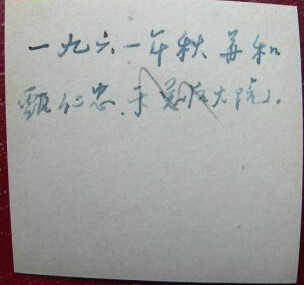 一九六一年秋 并和
甄仁忠.于 大院.